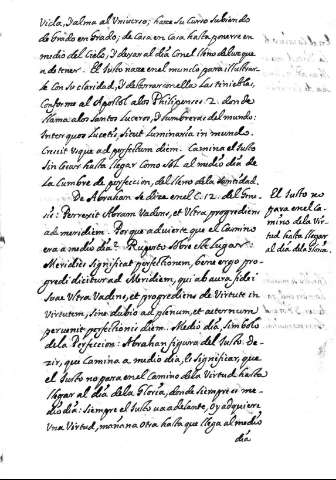 Vida, y alma al Vniverso; haze su Curso subiendo
de Grado en Grado; de Casa en Casa hasta ponerse en
medio del Cielo, y dexar al dia Con el lleno de luz que
a de tener. El Justo naze en el mundo para illustrar-
le Con su claridad, y desterrar en ella Las tinieblas,
Conforme al Apostol alos Philipenses 2. donde
llama alos Santos Luceros, y Lumbreras del mundo:
Inter quos Lucetis, Sicut Luminaria in mundo.
Crecit Vsque ad perfectum diem. Camina el Justo
Sin Cesar hasta llegar Como Sol al medio dia de
La Cumbre de perfeccion, del lleno dela Santidad.
De Abrahan Se dize en el C. 12. del Gne-
sis: Perrexit Abram Vadens, et Vltra progrediens
ad meridiem. Por que advierte que el Camino
era a medio dia? Ruperto Sobre este Lugar:
Meridies Significat perfectionem, bene ergo pro-
gredi dicitur ad Meridiem, qui ab aura fidei
Suae Vltra Vadens, et progrediens de Virtute in
Virtutem, Sine dubio ad plenum, et aeternum
pervenit perfectionis diem. Medio dia, Simbolo
dela Perfeccion: Abrahan figura del Justo. De-
zir, que Camina a medio dia, es Significar, que
el Justo no para en el Camino dela Virtud hasta
llegar al dia dela Gloria, donde Siempre es me-
dio dia: Siempre el Justo va adelante, oy adquiere
Vna Virtud, mañana otra hasta que llega al medio
dia
El Justo no
para en el Ca-
mino dela Vir-
tud hasta llegar
al dia dela Gloria.